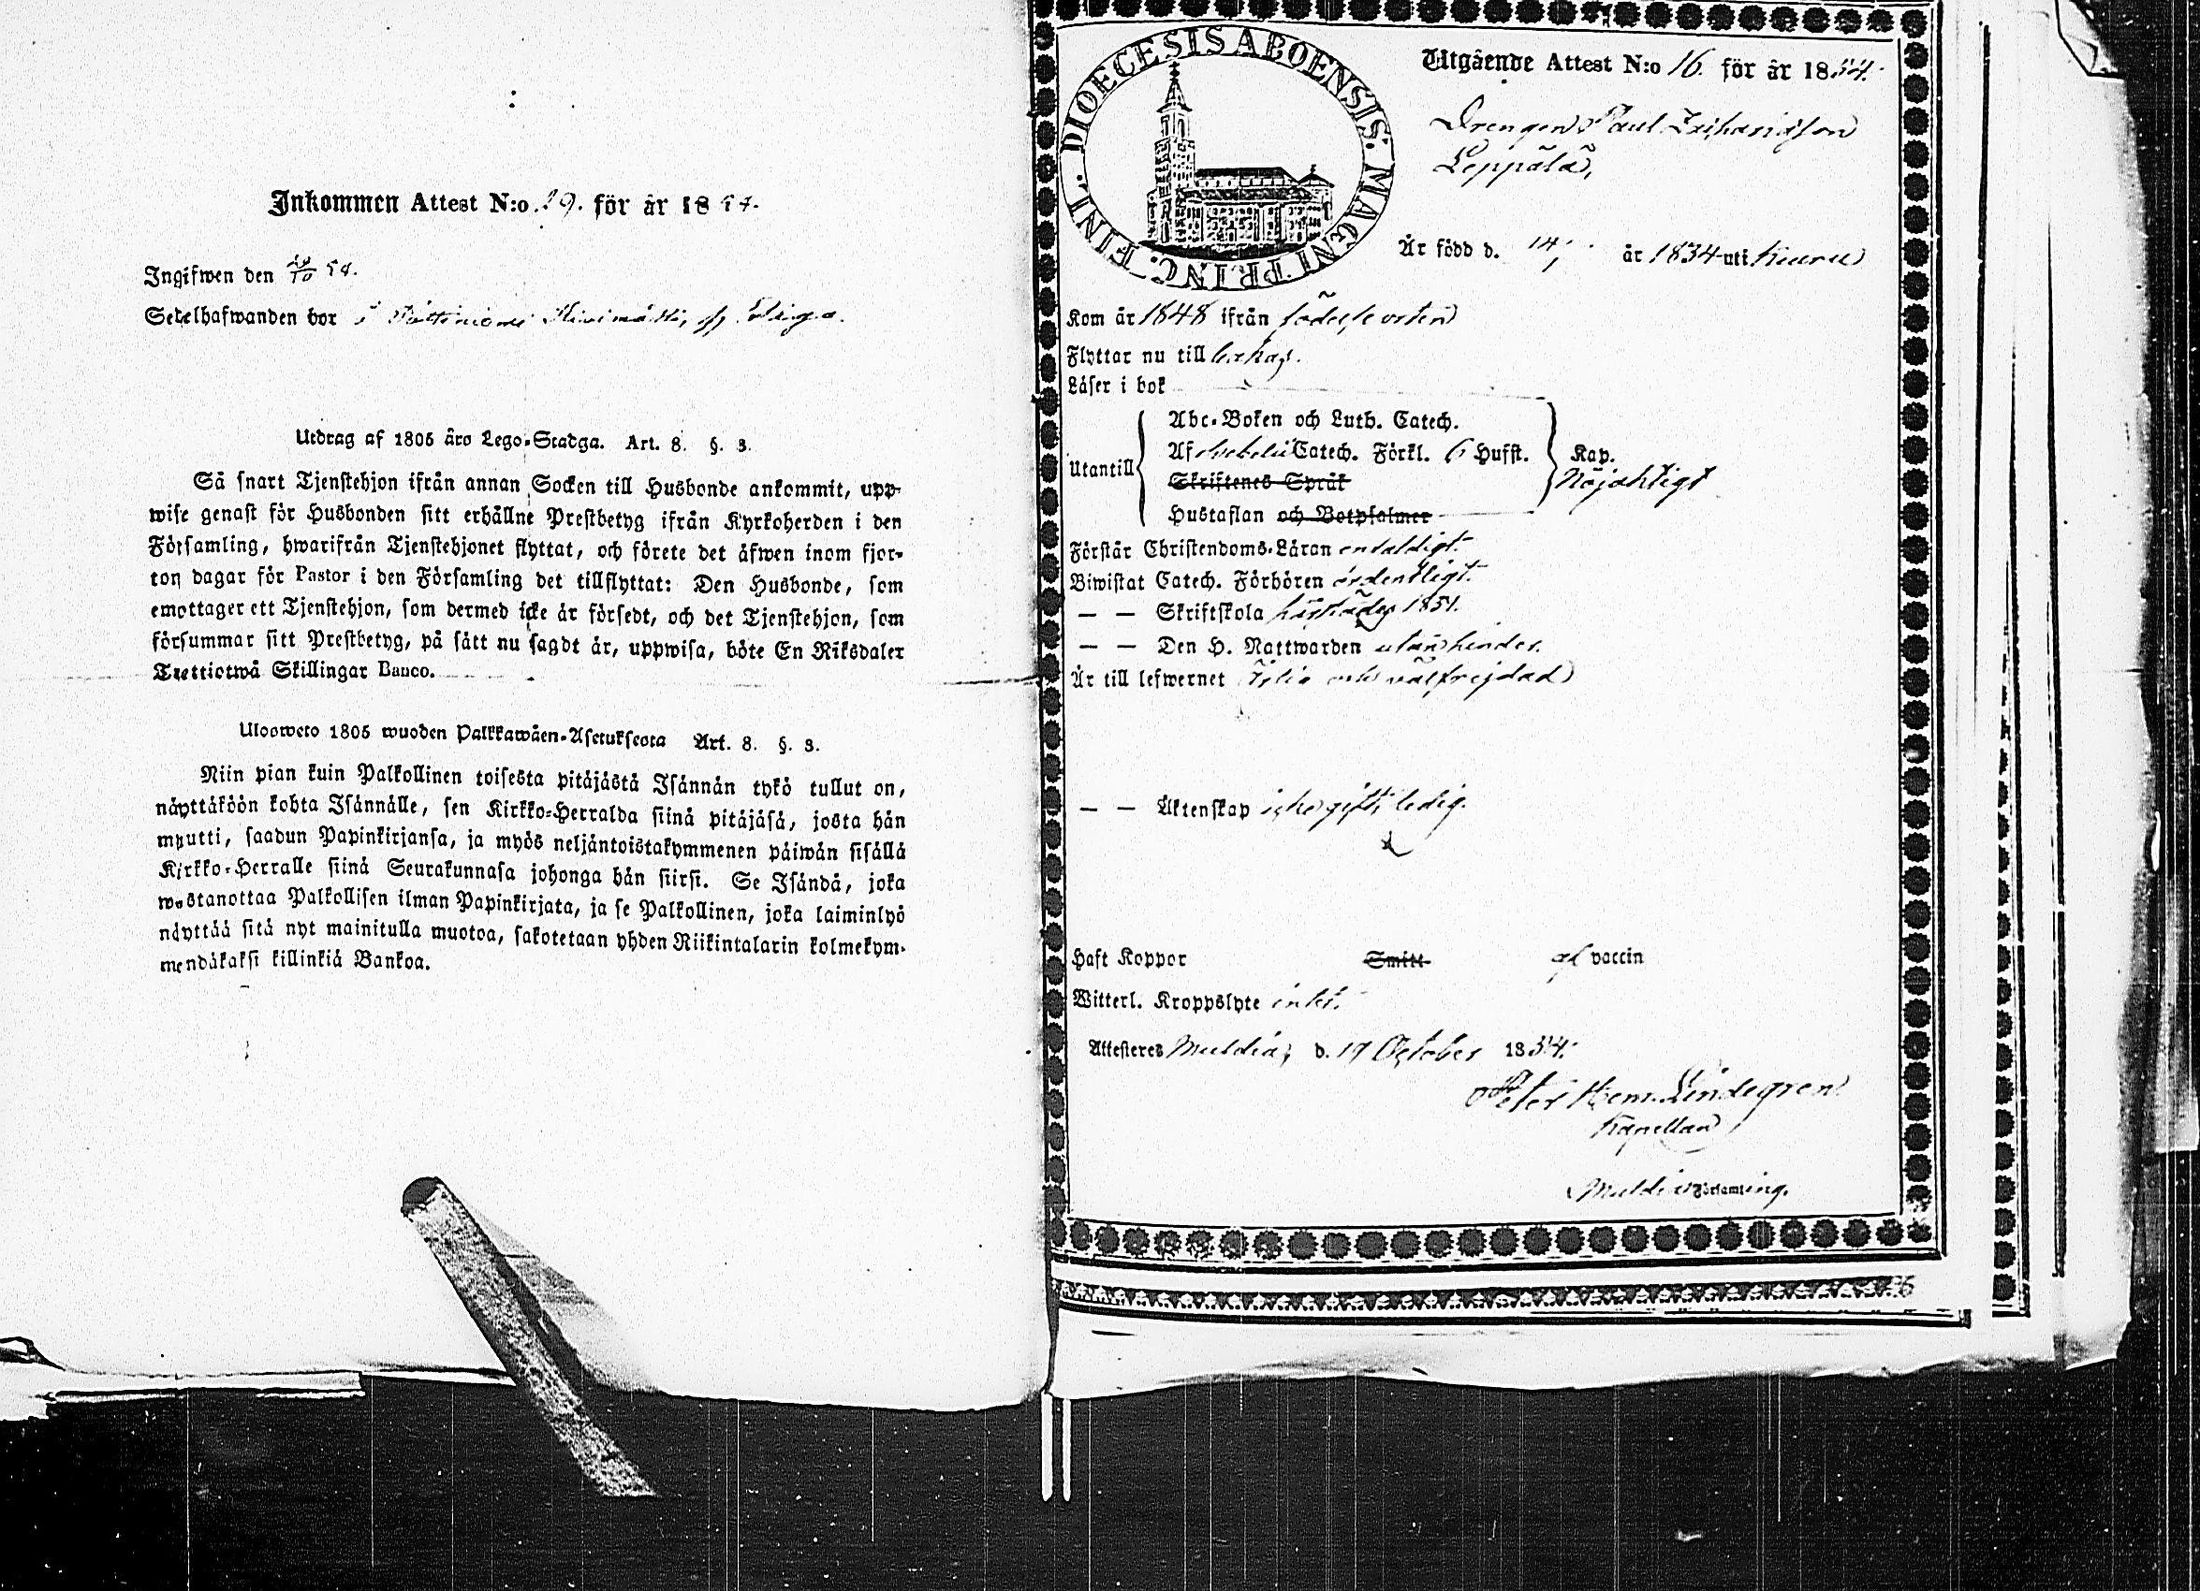 Inkommen Attest N:o 29. för år 1854.
Ingifwen den 29/10 54.
Sedelhafwanden bor i
Utdrag af 1805 års Lego-Stadga. Art. 8. §. 3.
Så snart Tjenstehjon ifrån annan Socken till Husbonde ankommit, upp-
wise genast för Husbonden sitt erhållne Prestbetyg ifrån Kyrkoherden i den
Församling, hwarifrån Tjenstehjonet flyttat, och förete det äfwen inom fjor-
ton dagar för Pastor i den Församling det tillflyttat: Den Husbonde, som
emottager ett Tjenstehjon, som dermed icke är försedt, och det Tjenstehjon, som
försummar sitt Prestbetyg, på sätt nu sagdt är, uppwisa, böte En Riksdaler
Trettiotwå Skillingar Banco.
Uloosweto 1805 wuoden Palkkawäen-Asetuksesta Art. 8. §. 3.
Niin pian kuin Palkollinen toisesta pitäjästä Isännän tykö tullut on,
näyttäköön kohta Isännälle, sen Kirkko-Herralda siinä pitäjäsä, josta hän
muutti, saadun Papinkirjansa, ja myös neljäntoistakymmenen päiwän sisällä
Kirkko-Herralle siinä Seurakunnasa johonga hän siirsi. Se Isändä, joka
wastanottaa Palkollisen ilman Papinkirjata, ja se Palkollinen, joka laiminlyö
näyttää sitä nyt mainitulla muotoa, sakotetaan yhden Riikintalarin kolmekym-
mendäkaksi killinkiä Bankoa.
DIOECESIS ABOENSIS. MAGNI PRINC. FINL.
Utgående Attest N:o 16. för år 1854.
Drengen Paul Zachariasson
Leppälä,
Är född d. 14/1 år 1834 uti Kuru
Kom år 1848 ifrån födelseorten
Flyttar nu till
Läser i bok
Utantill
Abc-Boken och Luth. Catech.
Af Svebelii Catech. Förkl. 6 Hufst.
Skriftenes Språk
Hustaflan och Botpsalmer
Kap.
Nöjaktigt
Förstår Christendoms-Läran enfaldigt.
Biwistat Catech. Förhören ordentligt.
— — Skriftskola härstädes 1851.
— — Den H. Nattwarden utan hinder.
Är till lefwernet och välfrejdad
— — Äktenskap icke gift, ledig.
Haft Koppor Smitt af vaccin
Witterl. Kroppslyte intet.
Attesteres Muldia, d. 17 October 1854.
Peter Hem. Lindegren
Kapellan
Muldia Församling.